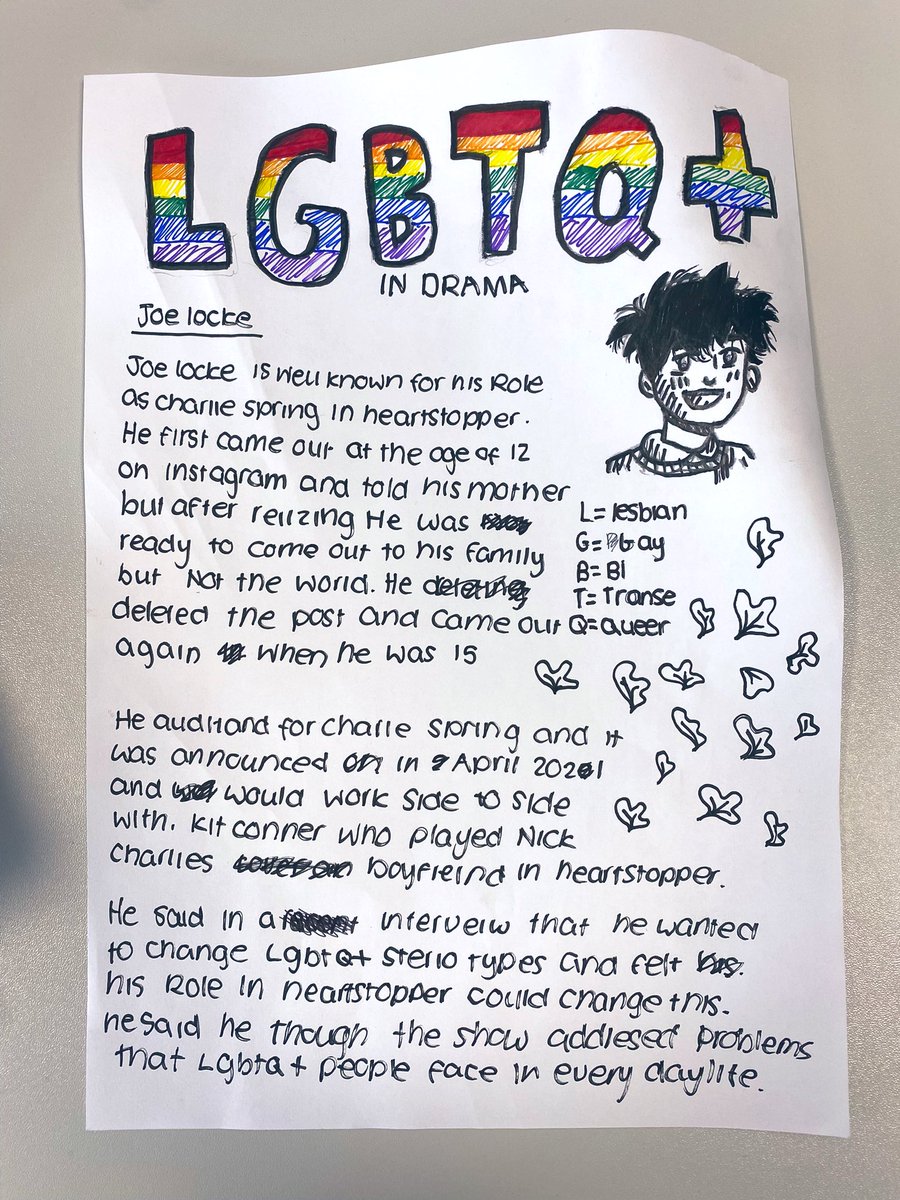 LGBTQ+
IN DRAMA
Joe locke
Joe locke is well known for his Role
as charlie spring in heartstopper.
He first came out at the age of 12
on instagram and told his mother
but after relizing He was
ready to come out to his family
but Not the world. He
deleted the post and came out
again when he was 15
L= lesbian
G= Gay
B= BI
T= Transe
Q= queer
He auditiand for charlie spring and it
was announced in April 2021
and would work side to side
with. kit conner who played Nick
Charlies boyfreind in heartstopper.
He said in a interveiw that he wanted
to change Lgbtq+ sterio types and felt
his Role in heartstopper could change this.
he said he though the show addlesed problems
that Lgbtq+ people face in every daylife.